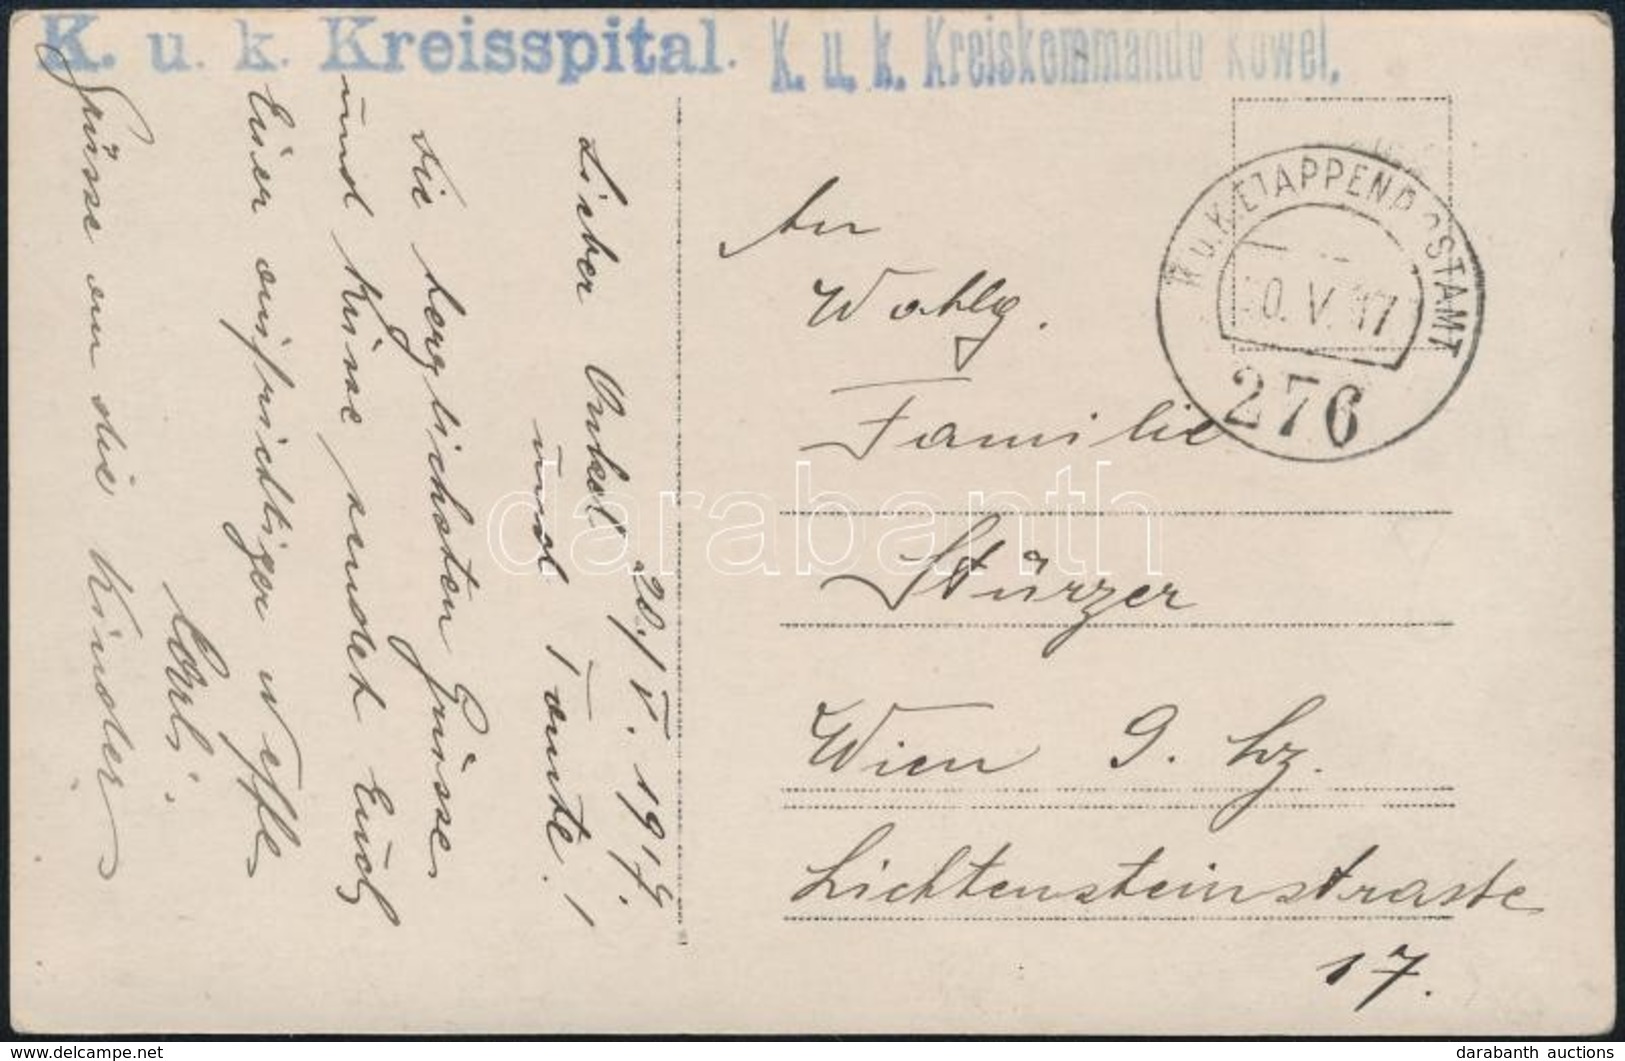 K. u. k. Kreisspital.
K. u. k. Kreiskommando Kowel.
20./V. 1917.
Lieber Onkel
und Tante!
Die herzlichsten Grüsse
und Küsse sendet Euch
Euer aufrichtiger Neffe
Carli.
Grüsse an die Kinder
K.u.K. ETAPPENPOSTAMT
0. V. 17
276
An
Wohlg.
Familie
Stürzer
Wien 9. Bz.
Lichtensteinstrasse
17.
darabanth
darabanth auctions
delcampe.net